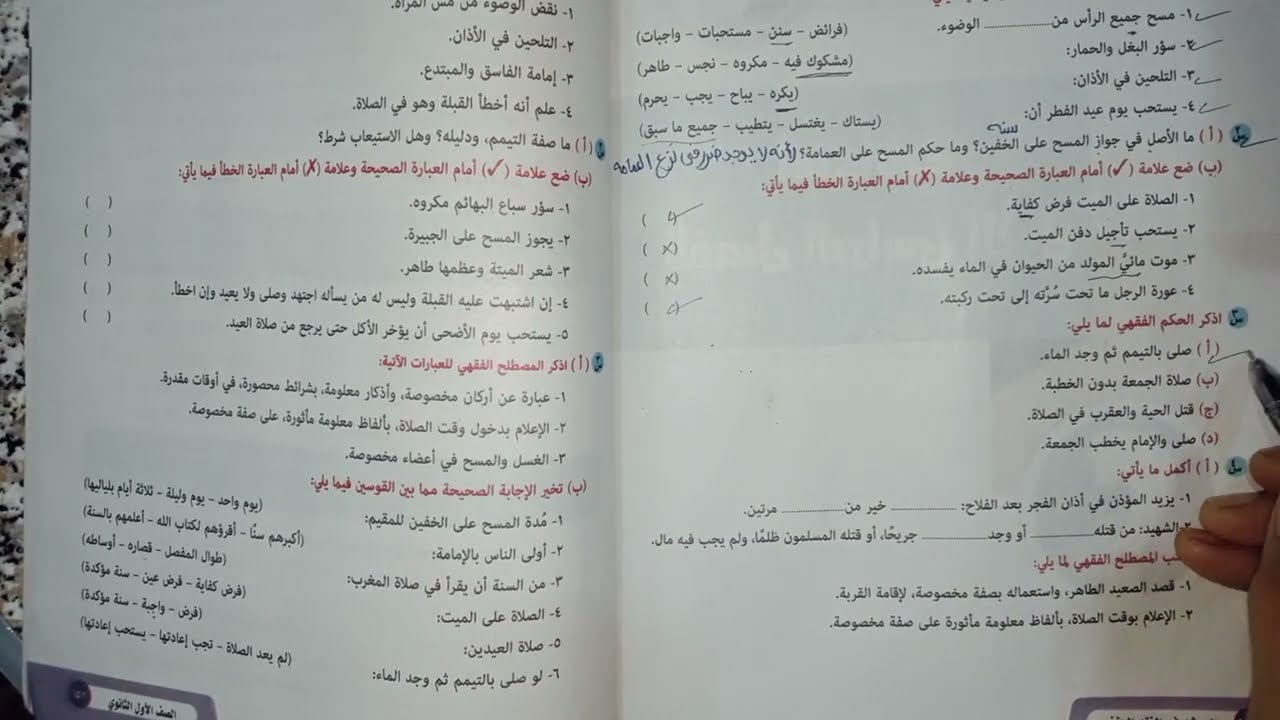 ١- مسح جميع الرأس من ............ الوضوء. (فرائض - سنن - مستحبات - واجبات)
٢- سؤر البغل والحمار: (مشكوك فيه - مكروه - نجس - طاهر)
٣- التلحين في الأذان: (يكره - يباح - يجب - يحرم)
٤- يستحب يوم عيد الفطر أن: (يستاك - يغتسل - يتطيب - جميع ما سبق)
سنه
س٢ (أ) ما الأصل في جواز المسح على الخفين؟ وما حكم المسح على العمامة؟ لأنه لا يوجد ضرر في نزع العمامه
(ب) ضع علامة (✓) أمام العبارة الصحيحة وعلامة (✗) أمام العبارة الخطأ فيما يأتي:
١- الصلاة على الميت فرض كفاية. (✓)
٢- يستحب تأجيل دفن الميت. (✗)
٣- موت مائيِّ المولد من الحيوان في الماء يفسده. (✗)
٤- عورة الرجل ما تحت سُرَّته إلى تحت ركبته. (✓)
س٣ اذكر الحكم الفقهي لما يلي:
(أ) صلى بالتيمم ثم وجد الماء.
(ب) صلاة الجمعة بدون الخطبة.
(ج) قتل الحية والعقرب في الصلاة.
(د) صلى والإمام يخطب الجمعة.
س٤ (أ) أكمل ما يأتي:
١- يزيد المؤذن في أذان الفجر بعد الفلاح: ............ خير من ............ مرتين.
٢- الشهيد: من قتله ............ أو وجد ............ جريحًا، أو قتله المسلمون ظلمًا، ولم يجب فيه مال.
المصطلح الفقهي لما يلي:
١- قصد الصعيد الطاهر، واستعماله بصفة مخصوصة، لإقامة القربة.
٢- الإعلام بوقت الصلاة، بألفاظ معلومة مأثورة على صفة مخصوصة.
١- نقض الوضوء من مس المرأة.
٢- التلحين في الأذان.
٣- إمامة الفاسق والمبتدع.
٤- علم أنه أخطأ القبلة وهو في الصلاة.
(أ) ما صفة التيمم، ودليله؟ وهل الاستيعاب شرط؟
(ب) ضع علامة (✓) أمام العبارة الصحيحة وعلامة (✗) أمام العبارة الخطأ فيما يأتي:
١- سؤر سباع البهائم مكروه. ( )
٢- يجوز المسح على الجبيرة. ( )
٣- شعر الميتة وعظمها طاهر. ( )
٤- إن اشتبهت عليه القبلة وليس له من يسأله اجتهد وصلى ولا يعيد وإن اخطأ. ( )
٥- يستحب يوم الأضحى أن يؤخر الأكل حتى يرجع من صلاة العيد. ( )
(أ) اذكر المصطلح الفقهي للعبارات الآتية:
١- عبارة عن أركان مخصوصة، وأذكار معلومة، بشرائط محصورة، في أوقات مقدرة.
٢- الإعلام بدخول وقت الصلاة، بألفاظ معلومة مأثورة، على صفة مخصوصة.
٣- الغسل والمسح في أعضاء مخصوصة.
(ب) تخير الإجابة الصحيحة مما بين القوسين فيما يلي:
١- مُدة المسح على الخفين للمقيم: (يوم واحد - يوم وليلة - ثلاثة أيام بلياليها)
٢- أولى الناس بالإمامة: (أكبرهم سنًّا - أقرؤهم لكتاب الله - أعلمهم بالسنة)
٣- من السنة أن يقرأ في صلاة المغرب: (طوال المفصل - قصاره - أوساطه)
٤- الصلاة على الميت: (فرض كفاية - فرض عين - سنة مؤكدة)
٥- صلاة العيدين: (فرض - واجبة - سنة مؤكدة)
٦- لو صلى بالتيمم ثم وجد الماء: (لم يعد الصلاة - تجب إعادتها - يستحب إعادتها)
الصف الأول الثانوي